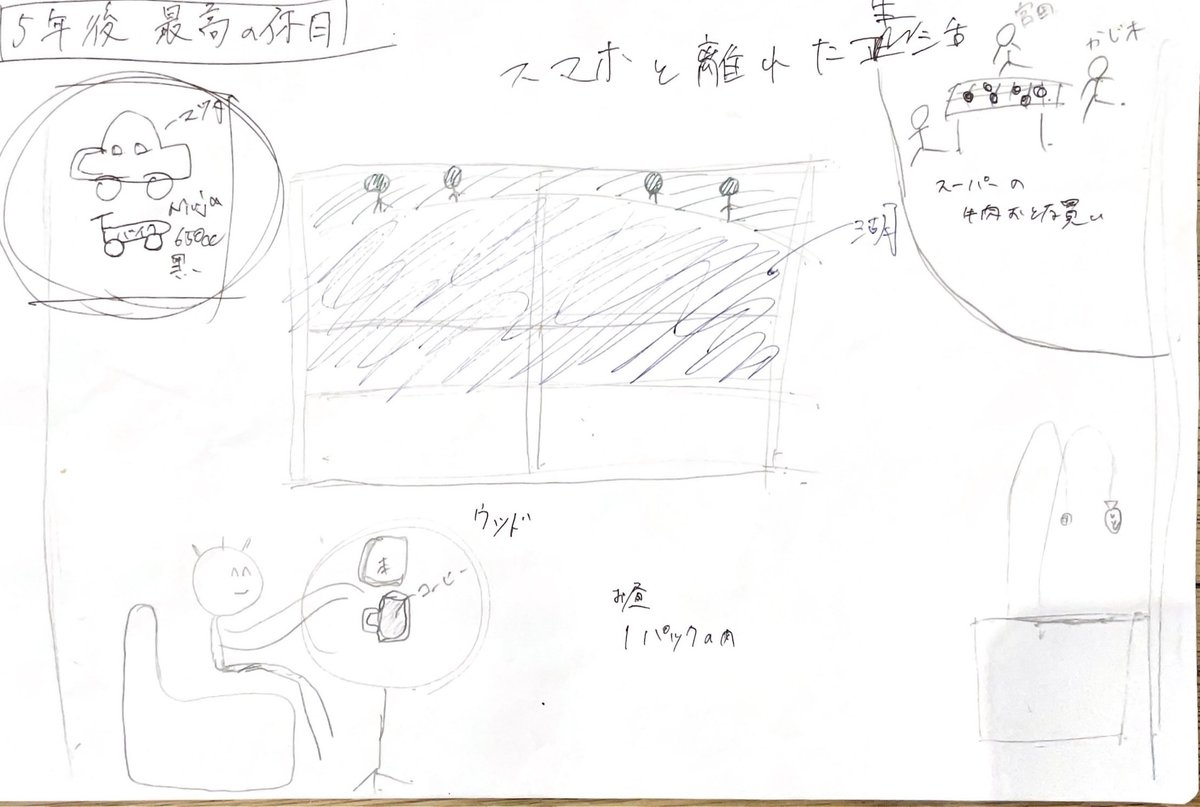 5年後 最高の休日
スマホと離れた生活
宮田
かじ木
マツダ
Ninja
650cc
黒
バイク
スーパーの
牛肉おとな買い
ウッド
本
コーヒー
お昼
1パックの肉